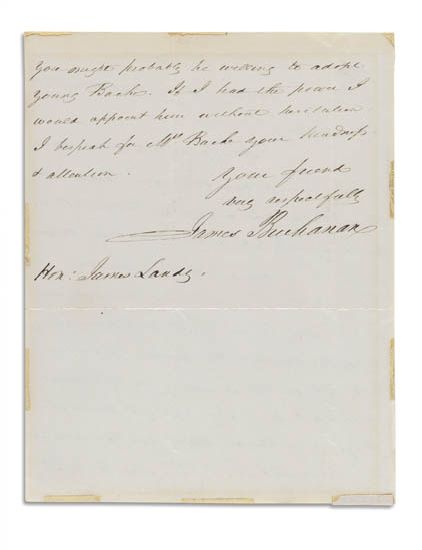 you might probably be willing to adopt
young Bache. If I had the power I
would appoint him without hesitation
I bespeak for Mr Bache your kindness
& attention.
your friend
very respectfully
James Buchanan
Hon: James Landy.